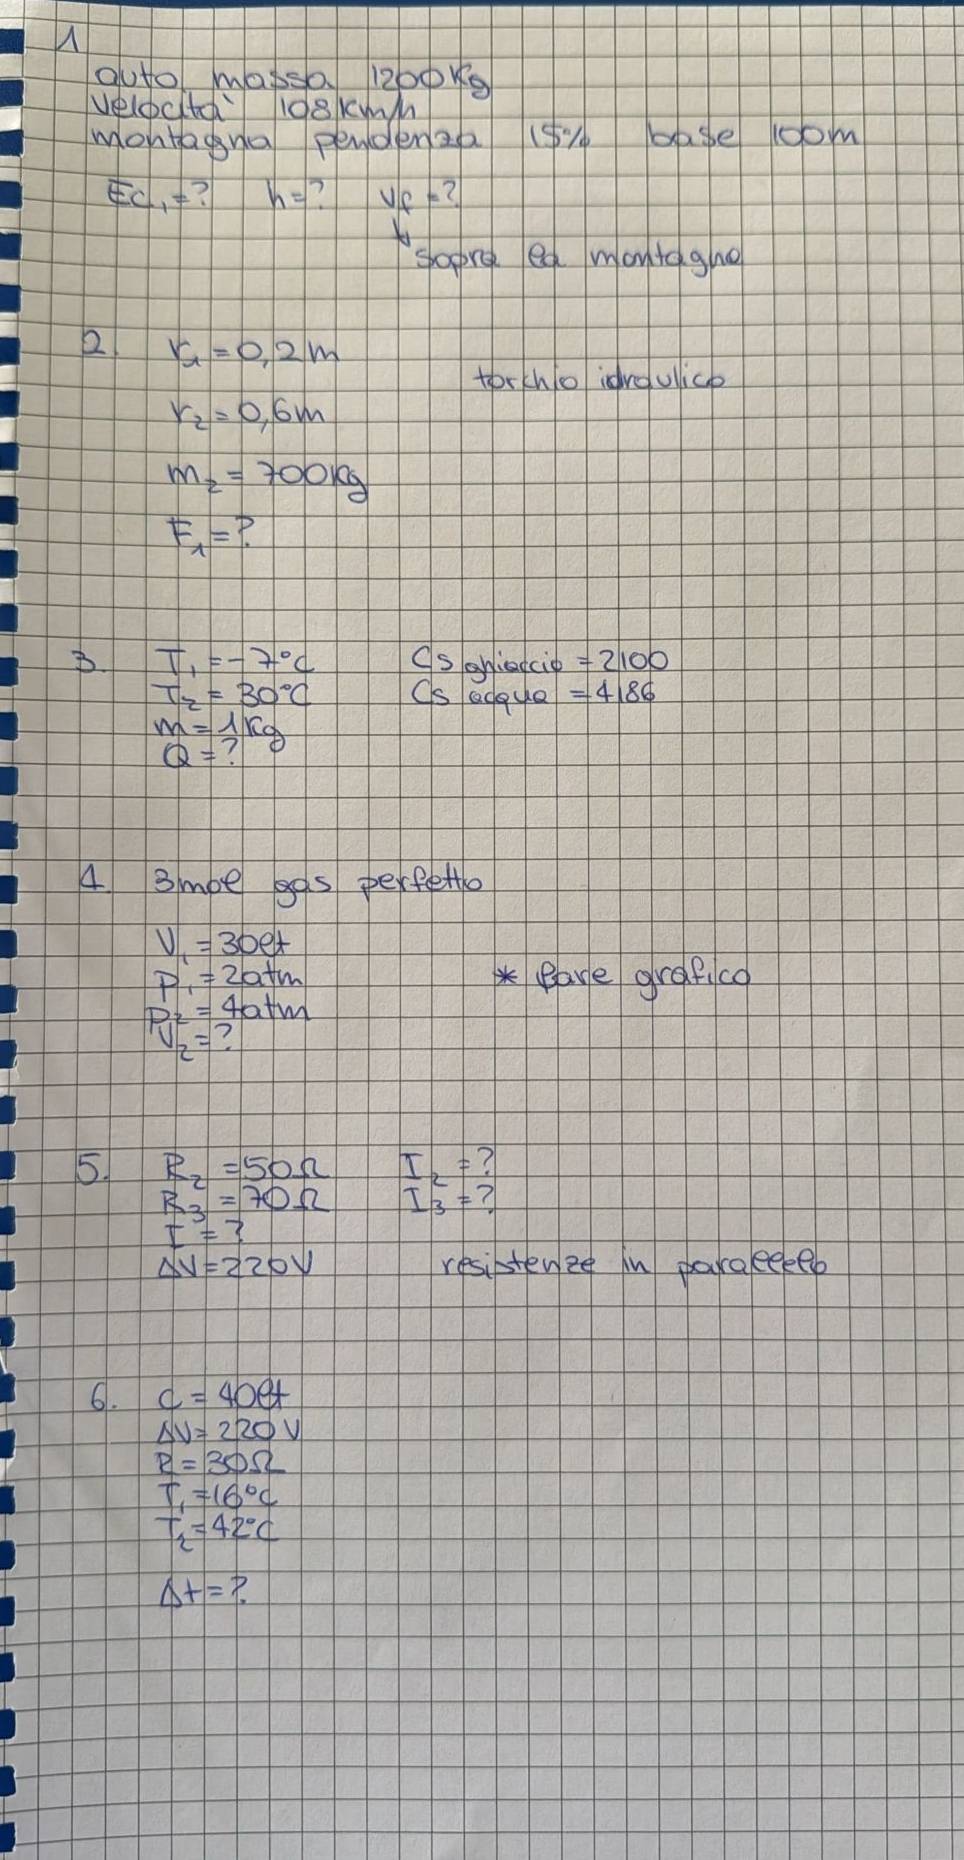 1
auto massa 1200Kg
velocità 108Km/h
montagna pendenza 15% base 100m
Ec₁=? h=? vf=?
↳ sopra la montagna
2. r₁=0,2m
torchio idraulico
r₂=0,6m
m₂=700Kg
F₁=?
3. T₁=-7°C Cs ghiaccio = 2100
T₂=30°C Cs acqua = 4186
m=1Kg
Q=?
4. 3mol gas perfetto
V₁=30lt
P₁=2atm * fare grafico
P₂=4atm
V₂=?
5. R₂=50Ω I₂=?
R₃=70Ω I₃=?
I=?
ΔV=220V resistenze in parallelo
6. C=40lt
ΔV=220V
R=30Ω
T₁=16°C
T₂=42°C
Δt=?